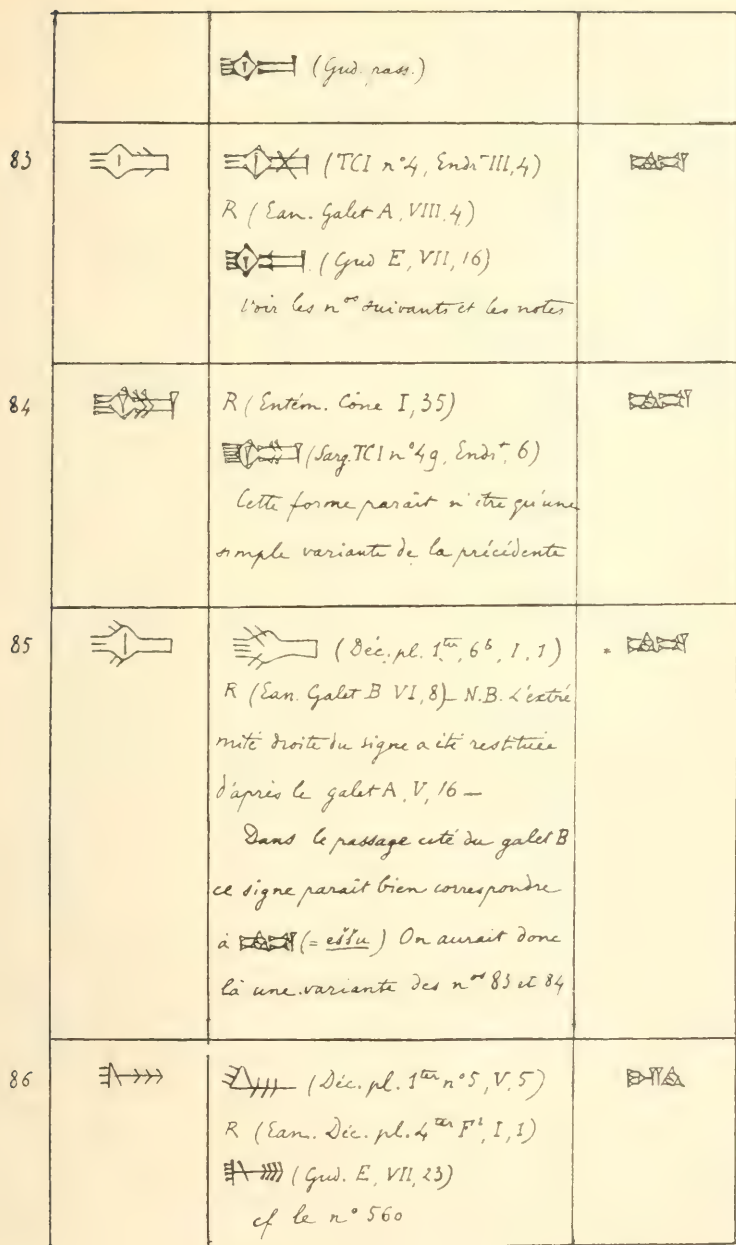 (Gud. pass.)
83 (TCI n°4, Endr^t III, 4)
R (Ean. Galet A, VIII, 4)
(Gud E, VII, 16)
Voir les n^os suivants et les notes
84 R (Entém. Cône I, 35)
(Sarg. TCI n°49, Endr^t, 6)
Cette forme paraît n'être qu'une
simple variante de la précédente
85 (Déc. pl. 1^ter, 6^b, I, 1)
R (Ean. Galet B VI, 8) — N.B. L'extré
mité droite du signe a été restituée
d'après le galet A, V, 16 —
Dans le passage cité du galet B
ce signe paraît bien correspondre
à (= eššu) On aurait donc
là une variante des n^os 83 et 84
86 (Déc. pl. 1^ter n°5, V, 5)
R (Ean. Déc. pl. 4^ter F², I, 1)
(Gud. E, VII, 23)
cf le n° 560